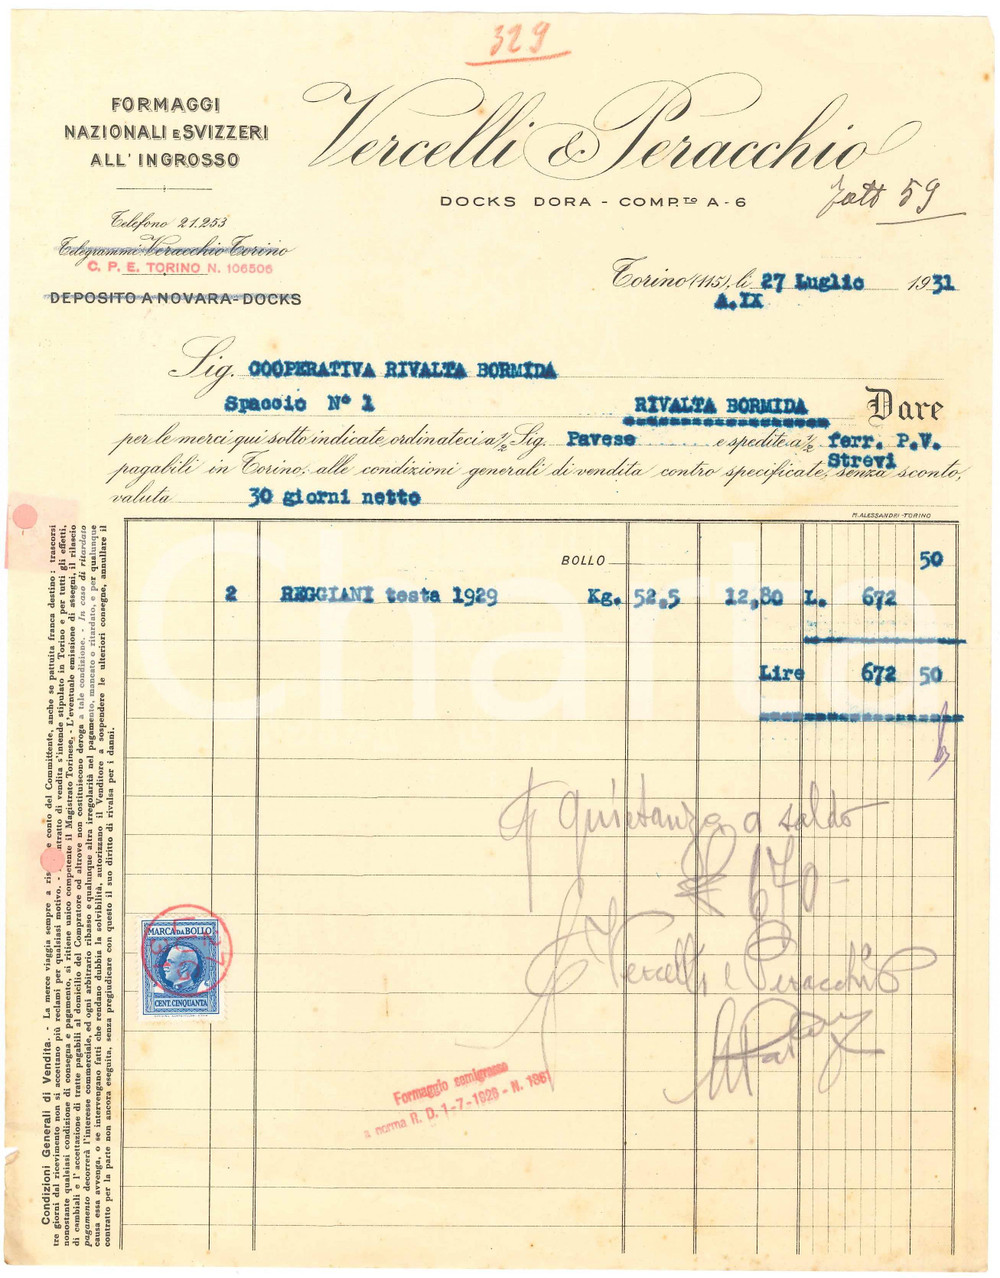 329
FORMAGGI
NAZIONALI E SVIZZERI
ALL' INGROSSO
Vercelli & Peracchio
DOCKS DORA - COMP.TO A-6
Fatt 59
Telefono 21.253
Telegrammi: Veracchio Torino
C. P. E. TORINO N. 106506
DEPOSITO A NOVARA-DOCKS
Torino (115), li 27 Luglio 1931
A.IX
Sig. COOPERATIVA RIVALTA BORMIDA
Spaccio N° 1 RIVALTA BORMIDA Dare
per le merci qui sotto indicate ordinateci a/½ Sig. Pavese e spedite a/½ ferr. P.V.
Strevi
pagabili in Torino: alle condizioni generali di vendita contro specificate, senza sconto,
valuta 30 giorni netto
M. ALESSANDRI - TORINO
BOLLO 50
2 REGGIANI testa 1929 Kg. 52,5 12,80 L. 672
Lire 672 50
quietanza a saldo
£ 670-
Vercelli e Peracchio
MARCA DA BOLLO
CENT. CINQUANTA
Formaggio semigrasso
a norma R. D. 1-7-1926 - N. 1361
Condizioni Generali di Vendita. - La merce viaggia sempre a ris e conto del Committente, anche se pattuita franca destino: trascorsi
tre giorni dal ricevimento non si accettano più reclami per qualsiasi motivo. - ntratto di vendita s'intende stipulato in Torino e per tutti gli effetti,
nonostante qualsiasi condizione di consegna e pagamento, si ritiene unico competente il Magistrato Torinese. - L'eventuale emissione di assegni, il rilascio
di cambiali e l' accettazione di tratte pagabili al domicilio del Compratore od altrove non costituiscono deroga a tale condizione. - In caso di ritardato
pagamento decorrerà l'interesse commerciale, ed ogni arbitrario ribasso e qualunque altra irregolarità nel pagamento, mancato o ritardato, e per qualunque
causa essa avvenga, o se intervengano fatti che rendano dubbia la solvibilità, autorizzano il Venditore a sospendere le ulteriori consegne, annullare il
contratto per la parte non ancora eseguita, senza pregiudicare con questo il suo diritto di rivalsa per i danni.